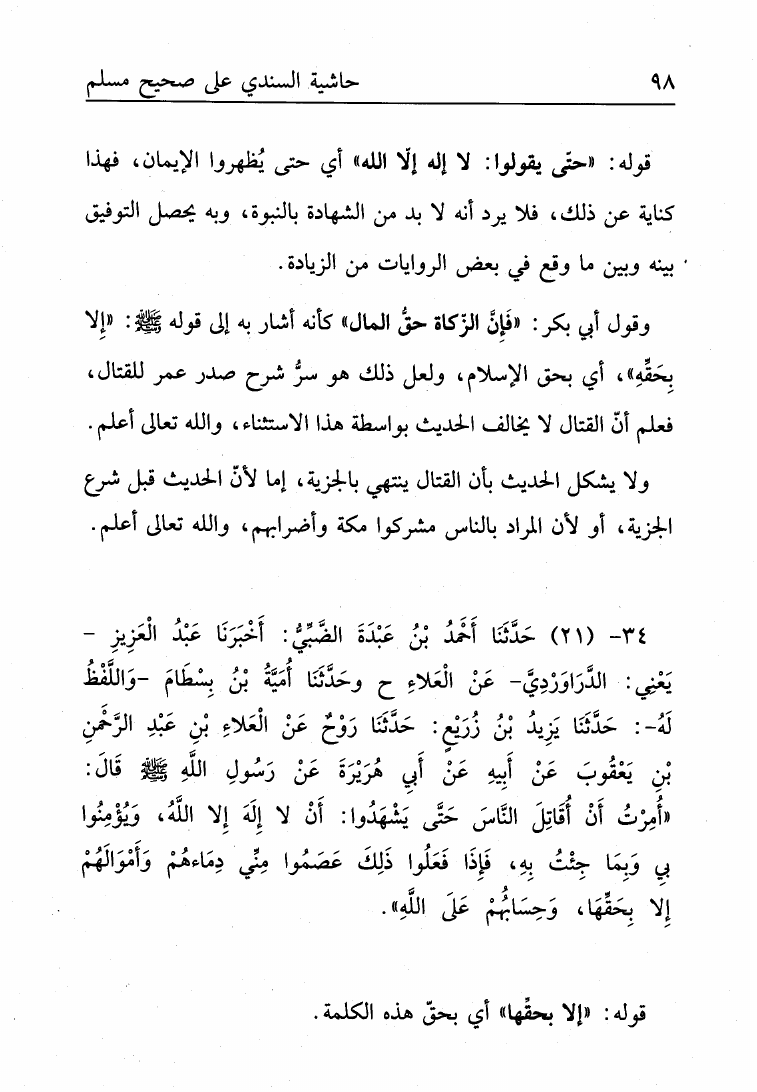 ٩٨ حاشية السندي على صحيح مسلم
قوله: «حتّى يقولوا: لا إله إلّا الله» أي حتى يُظهروا الإيمان، فهذا
كناية عن ذلك، فلا يرد أنه لا بد من الشهادة بالنبوة، وبه يحصل التوفيق
بينه وبين ما وقع في بعض الروايات من الزيادة.
وقول أبي بكر: «فَإِنَّ الزّكاة حقُّ المال» كأنه أشار به إلى قوله ﷺ: «إِلا
بِحَقِّهِ»، أي بحق الإسلام، ولعل ذلك هو سرُّ شرح صدر عمر للقتال،
فعلم أنّ القتال لا يخالف الحديث بواسطة هذا الاستثناء، والله تعالى أعلم.
ولا يشكل الحديث بأن القتال ينتهي بالجزية، إما لأنّ الحديث قبل شرع
الجزية، أو لأن المراد بالناس مشركوا مكة وأضرابهم، والله تعالى أعلم.
٣٤- (٢١) حَدَّثَنَا أَحْمَدُ بْنُ عَبْدَةَ الضَّبِّيُّ: أَخْبَرَنَا عَبْدُ الْعَزِيزِ -
يَعْنِي: الدَّرَاوَرْدِيَّ- عَنْ الْعَلاءِ ح وحَدَّثَنَا أُمَيَّةُ بْنُ بِسْطَامَ -وَاللَّفْظُ
لَهُ-: حَدَّثَنَا يَزِيدُ بْنُ زُرَيْعٍ: حَدَّثَنَا رَوْحٌ عَنْ الْعَلاءِ بْنِ عَبْدِ الرَّحْمَنِ
بْنِ يَعْقُوبَ عَنْ أَبِيهِ عَنْ أَبِي هُرَيْرَةَ عَنْ رَسُولِ اللَّهِ ﷺ قَالَ:
«أُمِرْتُ أَنْ أُقَاتِلَ النَّاسَ حَتَّى يَشْهَدُوا: أَنْ لا إِلَهَ إِلا اللَّهُ، وَيُؤْمِنُوا
بِي وَبِمَا جِئْتُ بِهِ، فَإِذَا فَعَلُوا ذَلِكَ عَصَمُوا مِنِّي دِمَاءَهُمْ وَأَمْوَالَهُمْ
إِلا بِحَقِّهَا، وَحِسَابُهُمْ عَلَى اللَّهِ».
قوله: «إلا بحقِّها» أي بحقّ هذه الكلمة.